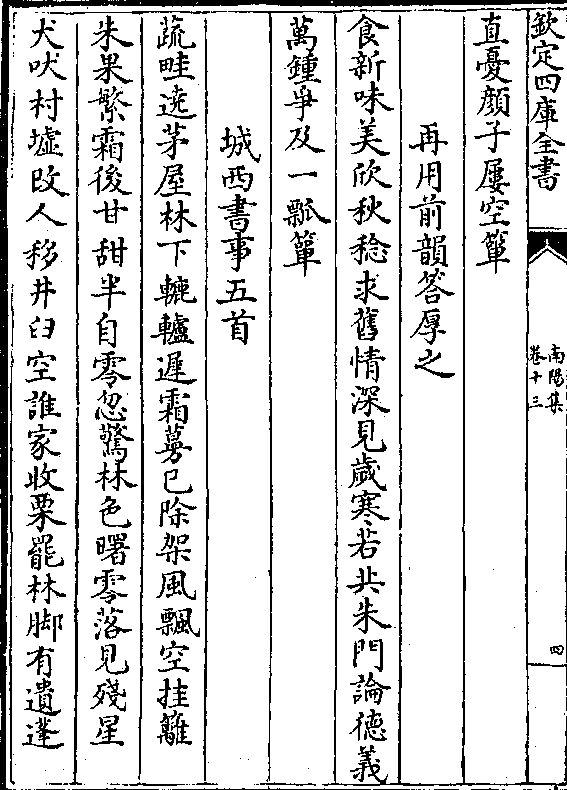 欽定四庫全書
南陽集
卷十三
四
直憂顔子屢空簞
再用前韻答厚之
食新味美欣秋稔求舊情深見歲寒若共朱門論德義
萬鍾爭及一瓢簞
城西書事五首
蔬畦遶茅屋林下轆轤遲霜蔓已除架風飄空挂籬
朱果繁霜後甘甜半自零忽驚林色曙零落見殘星
犬吠村墟改人移井臼空誰家收栗罷林脚有遺蓬